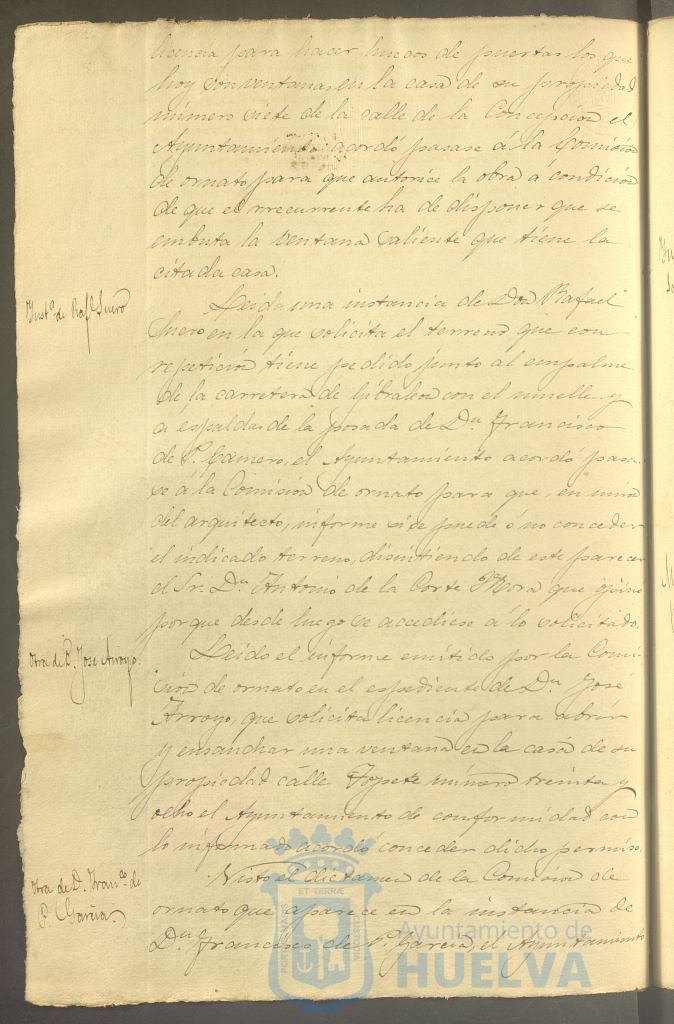 licencia para hacer huecos de puertas los que
hoy son ventanas en la casa de su propiedad
número siete de la calle de la Concepcion el
Ayuntamiento acordó pasase á la Comision
de ornato para que autorice la obra á condicion
de que el recurrente ha de disponer que se
embuta la ventana saliente que tiene la
citada casa.
Inst.ª de Raf.l Suero
Leida una instancia de Don Rafael
Suero en la que solicita el terreno que con
repeticion tiene pedido junto al empalme
de la carretera de Gibraleon con el muelle y
a espaldas de la posada de D.n Francisco
de P. Gamero, el Ayuntamiento acordó pasa-
se á la Comision de ornato para que, en union
del arquitecto, informe si se puede ó no conceder
el indicado terreno, disintiendo de este parecer
el Sr. D.n Antonio de la Corte Mora que opina
porque desde luego se accediese á lo solicitado.
Otra de D. José Arroyo.
Leido el informe emitido por la Comi-
sion de ornato en el espediente de D.n José
Arroyo, que solicita licencia para abrir
y ensanchar una ventana en la casa de su
propiedad calle Topete número treinta y
ocho el Ayuntamiento de conformidad con
lo informado acordó conceder dicho permiso.
Otra de D. Fran.co de
P. Garcia
Visto el dictamen de la Comision de
ornato que aparece en la instancia de
D.n Francisco de P. Garcia, el Ayuntamiento
ET TERRÆ
Ayuntamiento de
HUELVA